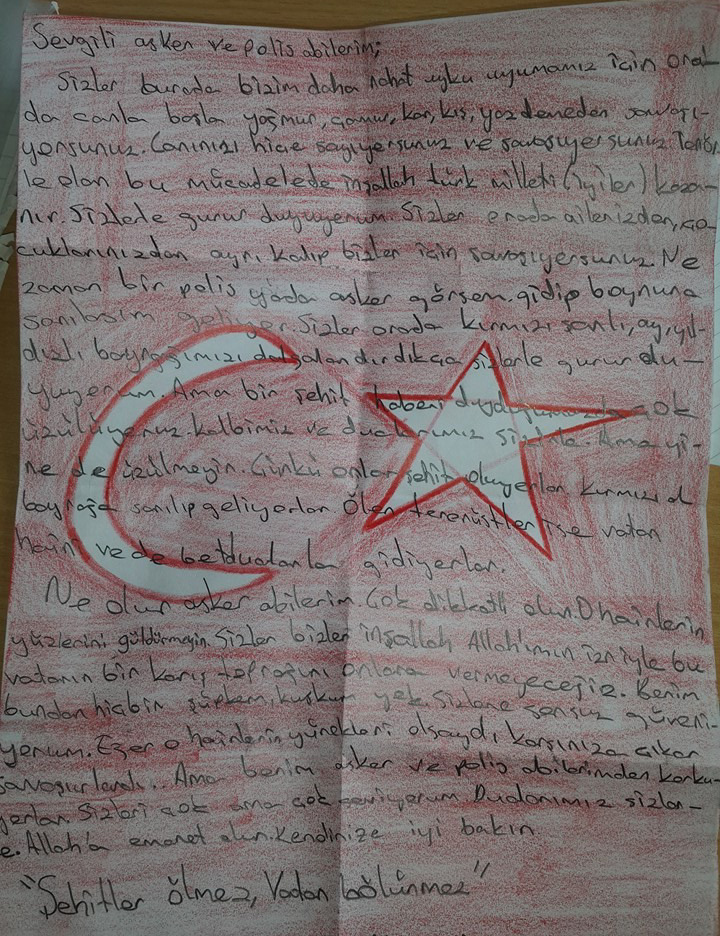 Sevgili asker ve polis abilerim;
Sizler burada bizim daha rahat uyku uyumamız için ora-
da canla başla yağmur, çamur, kar, kış, yaz demeden savaşı-
yorsunuz. Canınızı hiçe sayıyorsunuz ve savaşıyorsunuz.
le olan bu mücadelede inşallah türk milleti (iyiler) kaza-
nır. Sizlerle gurur duyuyorum. Sizler orada ailenizden, ço-
cuklarınızdan ayrı kalıp bizler için savaşıyorsunuz. Ne
zaman bir polis yada asker görsem. gidip boynuna
sarılasım geliyor. Sizler orada kırmızı şanlı, ay, yıl-
dızlı bayrağımızı dalgalandırdıkça sizlerle gurur du-
yuyorum. Ama bir şehit haberi duyduğumuzda çok
üzülüyoruz. kalbimiz ve dualarımız sizlerle. Ama yi-
ne de üzülmeyin. Çünkü onlar şehit oluyorlar kırmızı al
bayrağa sarılıp geliyorlar. Ölen teröristler ise vatan
haini ve de beddualarla gidiyorlar.
Ne olur asker abilerim. Çok dikkatli olun. O hainlerin
yüzlerini güldürmeyin. Sizler bizler inşallah Allah'ımın izniyle bu
vatanın bir karış toprağını onlara vermeyeceğiz. Benim
bundan hiçbir şüphem, kuşkum yok. Sizlere sonsuz güveni-
yorum. Eğer o hainlerin yürekleri olsaydı karşınıza çıkar
savaşırlardı.. Ama benim asker ve polis abilerimden korku-
yorlar. Sizleri çok ama çok seviyorum Dualarımız sizler-
e. Allah'a emanet olun. Kendinize iyi bakın.
"Şehitler ölmez, Vatan bölünmez"